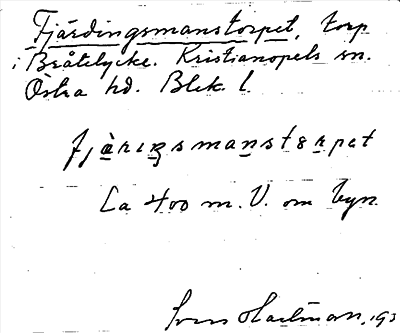 Fjärdingsmanstorpet, torp
i Bråtelycke. Kristianopels sn.
Östra hd. Blek. l.
fjäriŋsmanstorpet
Ca 400 m. V. om byn.
Sven